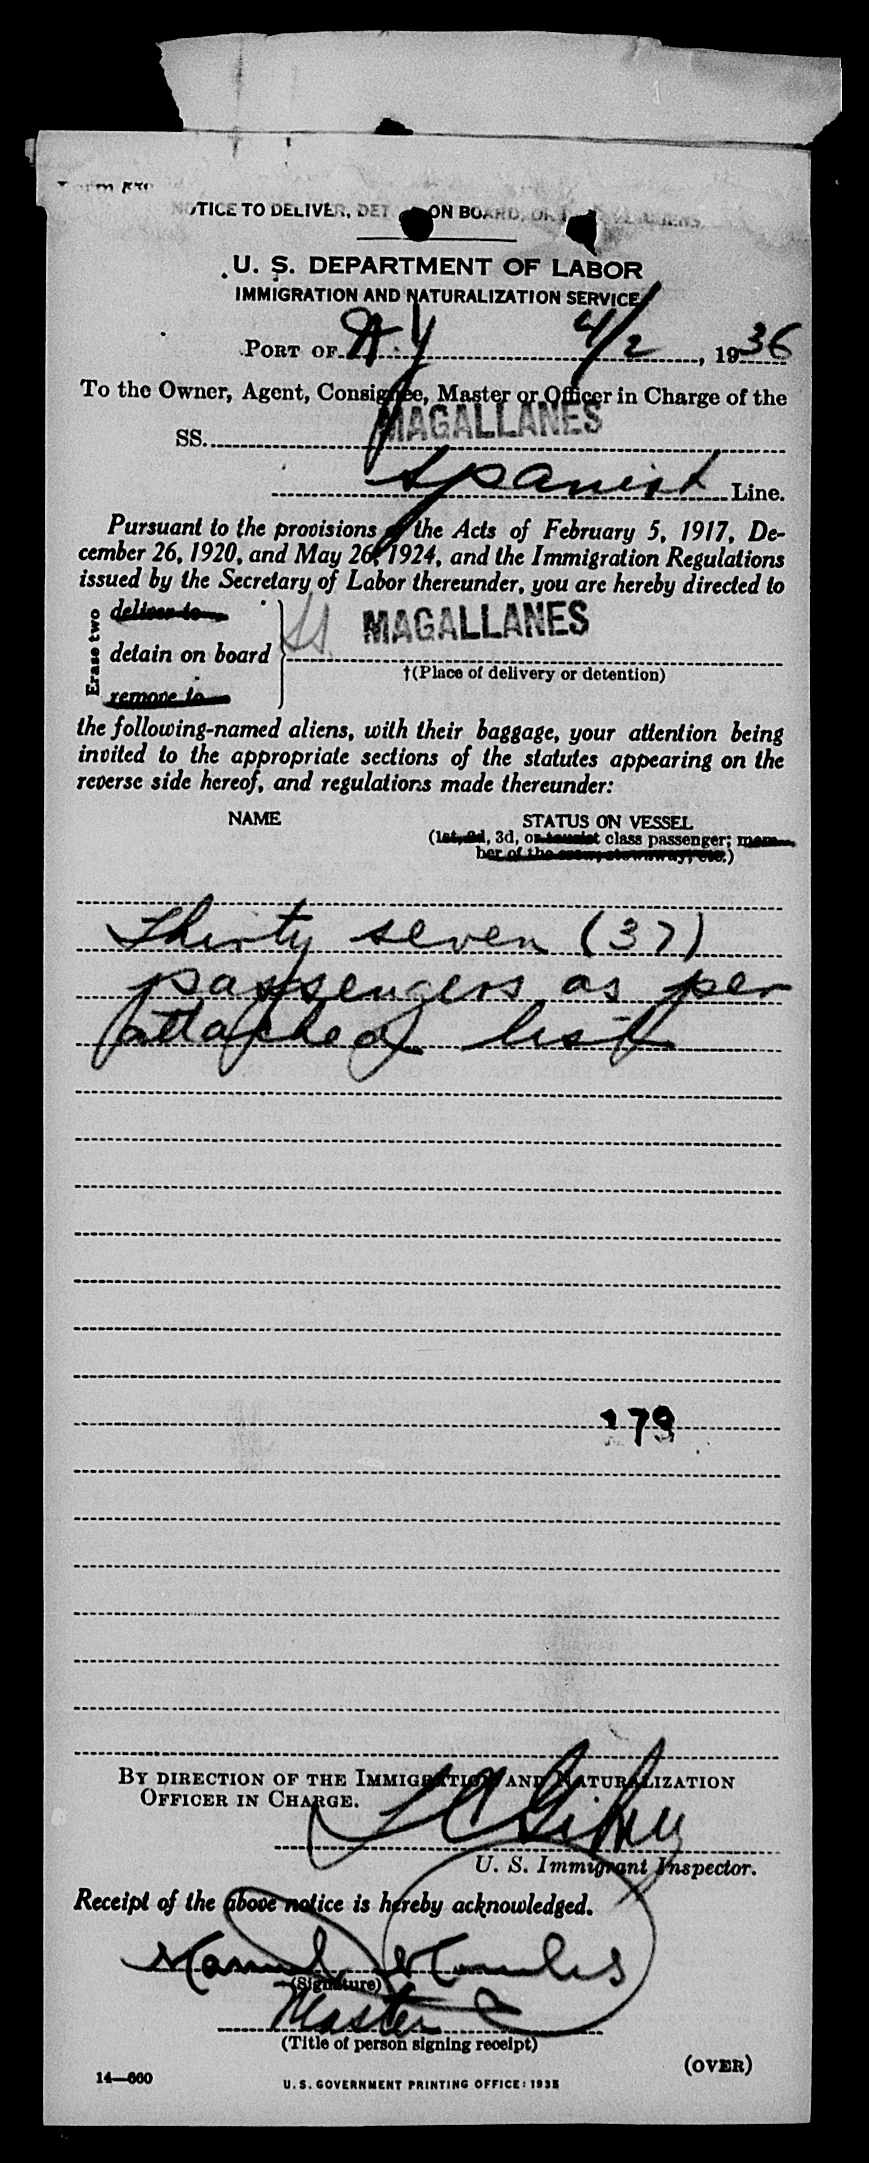 NOTICE TO DELIVER, DET ON BOARD, OR
U. S. DEPARTMENT OF LABOR
IMMIGRATION AND NATURALIZATION SERVICE
PORT OF N.Y 4/2, 1936
To the Owner, Agent, Consignee, Master or Officer in Charge of the
SS. MAGALLANES
Spanish Line.
Pursuant to the provisions of the Acts of February 5, 1917, De-
cember 26, 1920, and May 26, 1924, and the Immigration Regulations
issued by the Secretary of Labor thereunder, you are hereby directed to
Erase two
deliver to
detain on board SS. MAGALLANES
†(Place of delivery or detention)
remove to
the following-named aliens, with their baggage, your attention being
invited to the appropriate sections of the statutes appearing on the
reverse side hereof, and regulations made thereunder:
NAME STATUS ON VESSEL
(1st, 2d, 3d, or tourist class passenger; mem-
ber of the crew, stowaway, etc.)
Thirty seven (37)
passengers as per
attached list
179
BY DIRECTION OF THE IMMIGRATION AND NATURALIZATION
OFFICER IN CHARGE.
U. S. Immigrant Inspector.
Receipt of the above notice is hereby acknowledged.
Manuel Morales
(Signature)
Master
(Title of person signing receipt)
(OVER)
14—660
U. S. GOVERNMENT PRINTING OFFICE: 1935